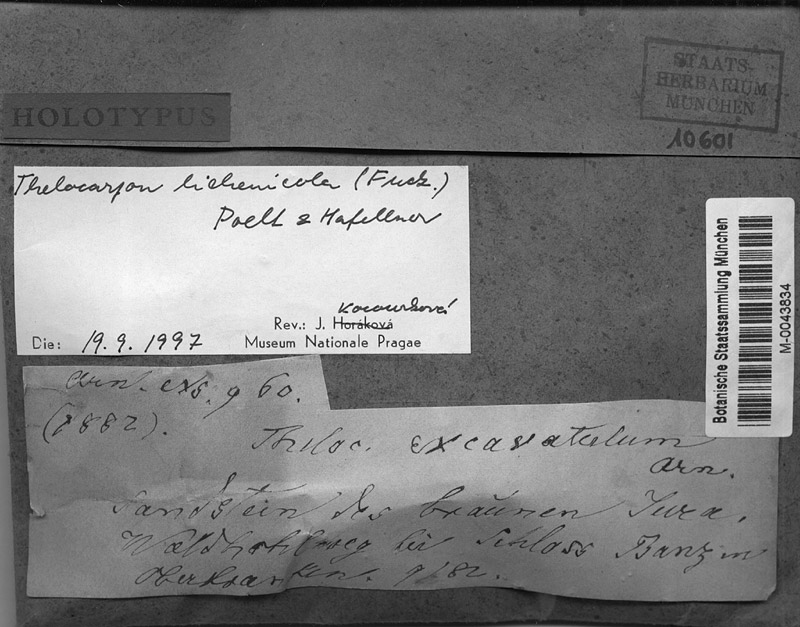 HOLOTYPUS
STAATS-
HERBARIUM
MÜNCHEN
10601
Thelocarpon lichenicola (Fuck.)
Poelt & Hafellner
Kocourková
Rev.: J. Horáková
Die: 19. 9. 1997 Museum Nationale Pragae
Botanische Staatssammlung München
M-0043834
Arn. exs. 960.
(1882).
Theloc. excavatulum
Arn.
Sandstein des braunen Jura.
Waldhohlweg bei Schloss Banz in
Oberfranken. 9/82.